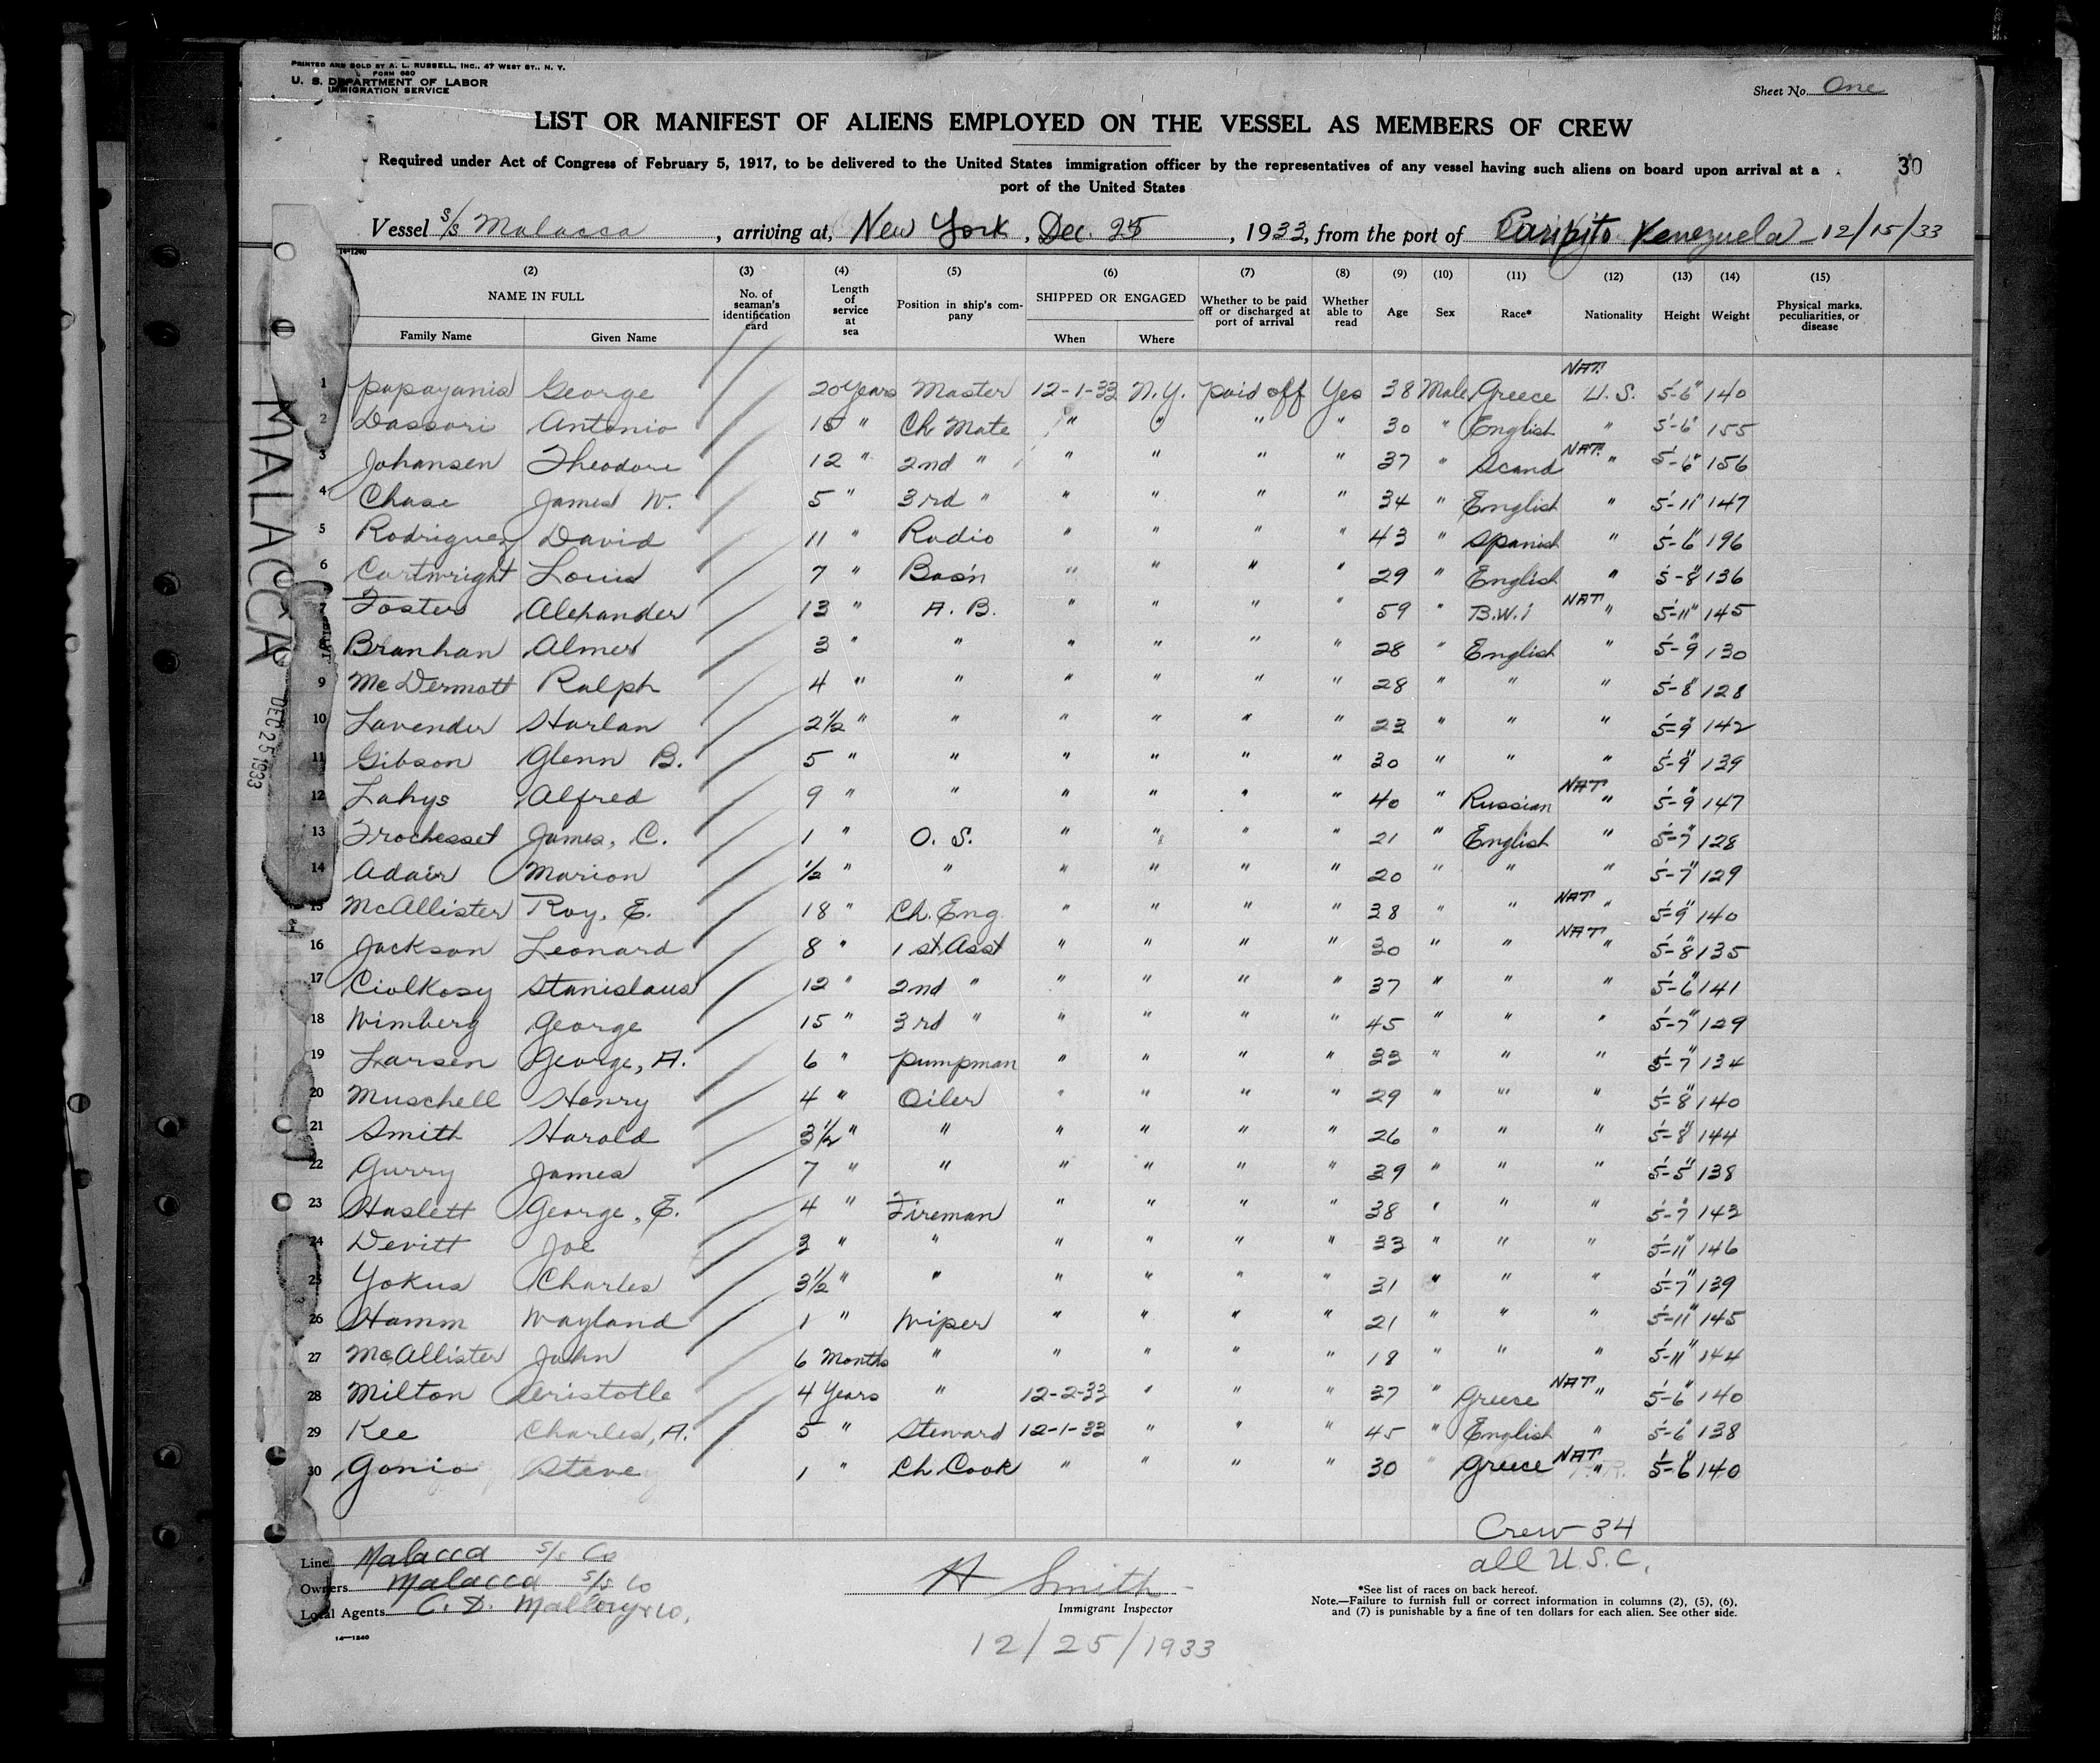 PRINTED AND SOLD BY A. L. RUSSELL, INC., 47 WEST ST., N. Y.
FORM 680
U. S. DEPARTMENT OF LABOR
IMMIGRATION SERVICE
Sheet No. One
LIST OR MANIFEST OF ALIENS EMPLOYED ON THE VESSEL AS MEMBERS OF CREW
Required under Act of Congress of February 5, 1917, to be delivered to the United States immigration officer by the representatives of any vessel having such aliens on board upon arrival at a
port of the United States
30
Vessel s/s Malacca, arriving at, New York, Dec. 25, 1933, from the port of Caripito Venezuela - 12/15/33
14-1240
(2) (3) (4) (5) (6) (7) (8) (9) (10) (11) (12) (13) (14) (15)
NAME IN FULL No. of seaman's identification card Length of service at sea Position in ship's company SHIPPED OR ENGAGED Whether to be paid off or discharged at port of arrival Whether able to read Age Sex Race* Nationality Height Weight Physical marks, peculiarities, or disease
Family Name Given Name When Where
1 Papayanis George 20 Years Master 12-1-33 N.Y. Paid off Yes 38 Male Greece NAT. U.S. 5'-6" 140
2 Dassori Antonio 15 " Ch Mate " " " " 30 " English " 5'-6" 155
3 Johansen Theodore 12 " 2nd " " " " " 37 " Scand NAT. " 5'-6" 156
4 Chase James W. 5 " 3rd " " " " " 34 " English " 5'-11" 147
5 Rodriguez David 11 " Radio " " " " 43 " Spanish " 5'-6" 196
6 Cartwright Louis 7 " Bos'n " " " " 29 " English " 5'-8" 136
7 Foster Alexander 13 " A. B. " " " " 59 " B.W.I NAT " 5'-11" 145
8 Branhan Almer 3 " " " " " " 28 " English " 5'-9" 130
9 McDermott Ralph 4 " " " " " " 28 " " " 5'-8" 128
10 Lavender Harlan 2½ " " " " " " 23 " " " 5'-9" 142
11 Gibson Glenn B. 5 " " " " " " 30 " " " 5'-9" 139
12 Lahys Alfred 9 " " " " " " 40 " Russian NAT " 5'-9" 147
13 Trochesset James, C. 1 " O. S. " " " " 21 " English " 5'-7" 128
14 Adair Marion ½ " " " " " " 20 " " " 5'-7" 129
15 McAllister Roy, E. 18 " Ch. Eng. " " " " 38 " " NAT " 5'-9" 140
16 Jackson Leonard 8 " 1st Asst " " " " 30 " " NAT " 5'-8" 135
17 Ciolkosy Stanislaus 12 " 2nd " " " " " 37 " " " 5'-6" 141
18 Wimberg George 15 " 3rd " " " " " 45 " " " 5'-7" 129
19 Larsen George, A. 6 " Pumpman " " " " 33 " " " 5'-7" 134
20 Muschell Henry 4 " Oiler " " " " 29 " " " 5'-8" 140
21 Smith Harold 3½ " " " " " " 26 " " " 5'-8" 144
22 Gurry James 7 " " " " " " 39 " " " 5'-5" 138
23 Haslett George, E. 4 " Fireman " " " " 38 " " " 5'-7" 143
24 Devitt Joe 3 " " " " " " 33 " " " 5'-11" 146
25 Yokus Charles 3½ " " " " " " 31 " " " 5'-7" 139
26 Hamm Wayland 1 " Wiper " " " " 21 " " " 5'-11" 145
27 McAllister John 6 Months " " " " " 18 " " " 5'-11" 144
28 Milton Aristotle 4 Years " 12-2-33 " " " 37 " Greece NAT " 5'-6" 140
29 Kee Charles, A. 5 " Steward 12-1-33 " " " 45 " English " 5'-6" 138
30 Gonio Steve 1 " Ch. Cook " " " " 30 " Greece NAT " 5'-6" 140
MALACCA
DEC 25 1933
Crew-34
all U.S.C.
Line Malacca S/S Co
Owners Malacca S/S Co
Local Agents C. D. Mallory & Co.
14-1240
H Smith
Immigrant Inspector
12/25/1933
*See list of races on back hereof.
Note.—Failure to furnish full or correct information in columns (2), (5), (6),
and (7) is punishable by a fine of ten dollars for each alien. See other side.